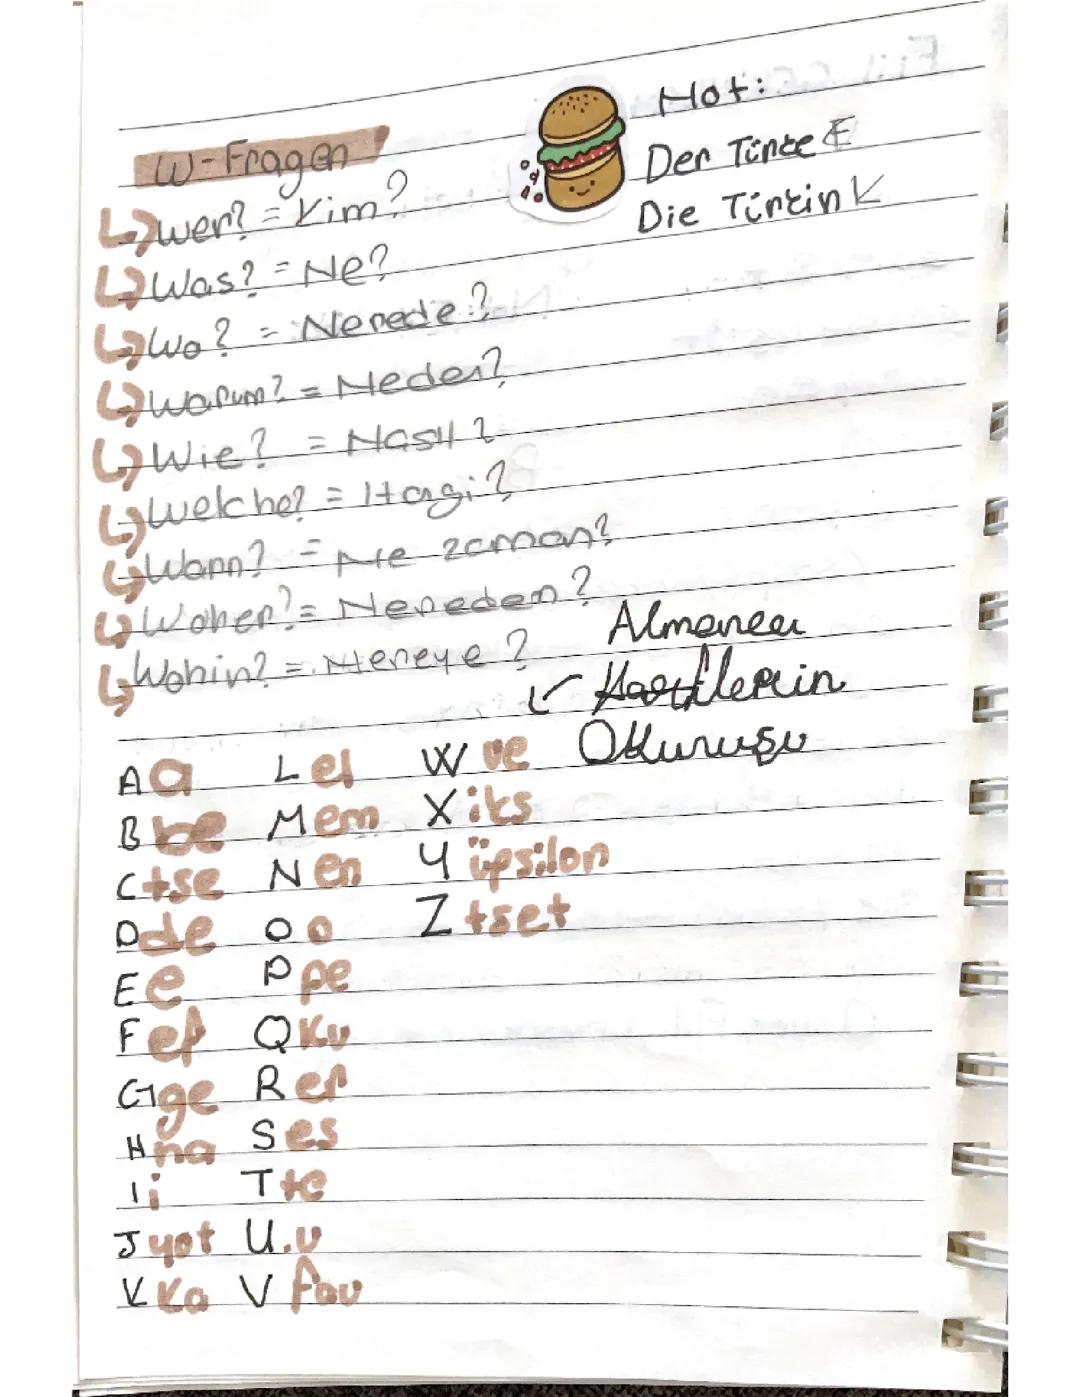 W-Fragen
Not:
Der Türke E
Die Türkin K
Wer? = Kim?
Was? = Ne?
Wo? = Nerede?
Warum? = Neden?
Wie? = Nasıl?
Welche? = Hangi?
Wann? = Ne zaman?
Woher? = Nereden?
Wohin? = Nereye?
Almanca
Harflerin
Okunuşu
A a
B be
C tse
D de
E e
F ef
G ge
H ha
I i
J yot
K Ka
L el
M em
N en
O o
P pe
Q Ku
R er
S es
T te
U u
V fav
W ve
X iks
Y üpsilon
Z tset